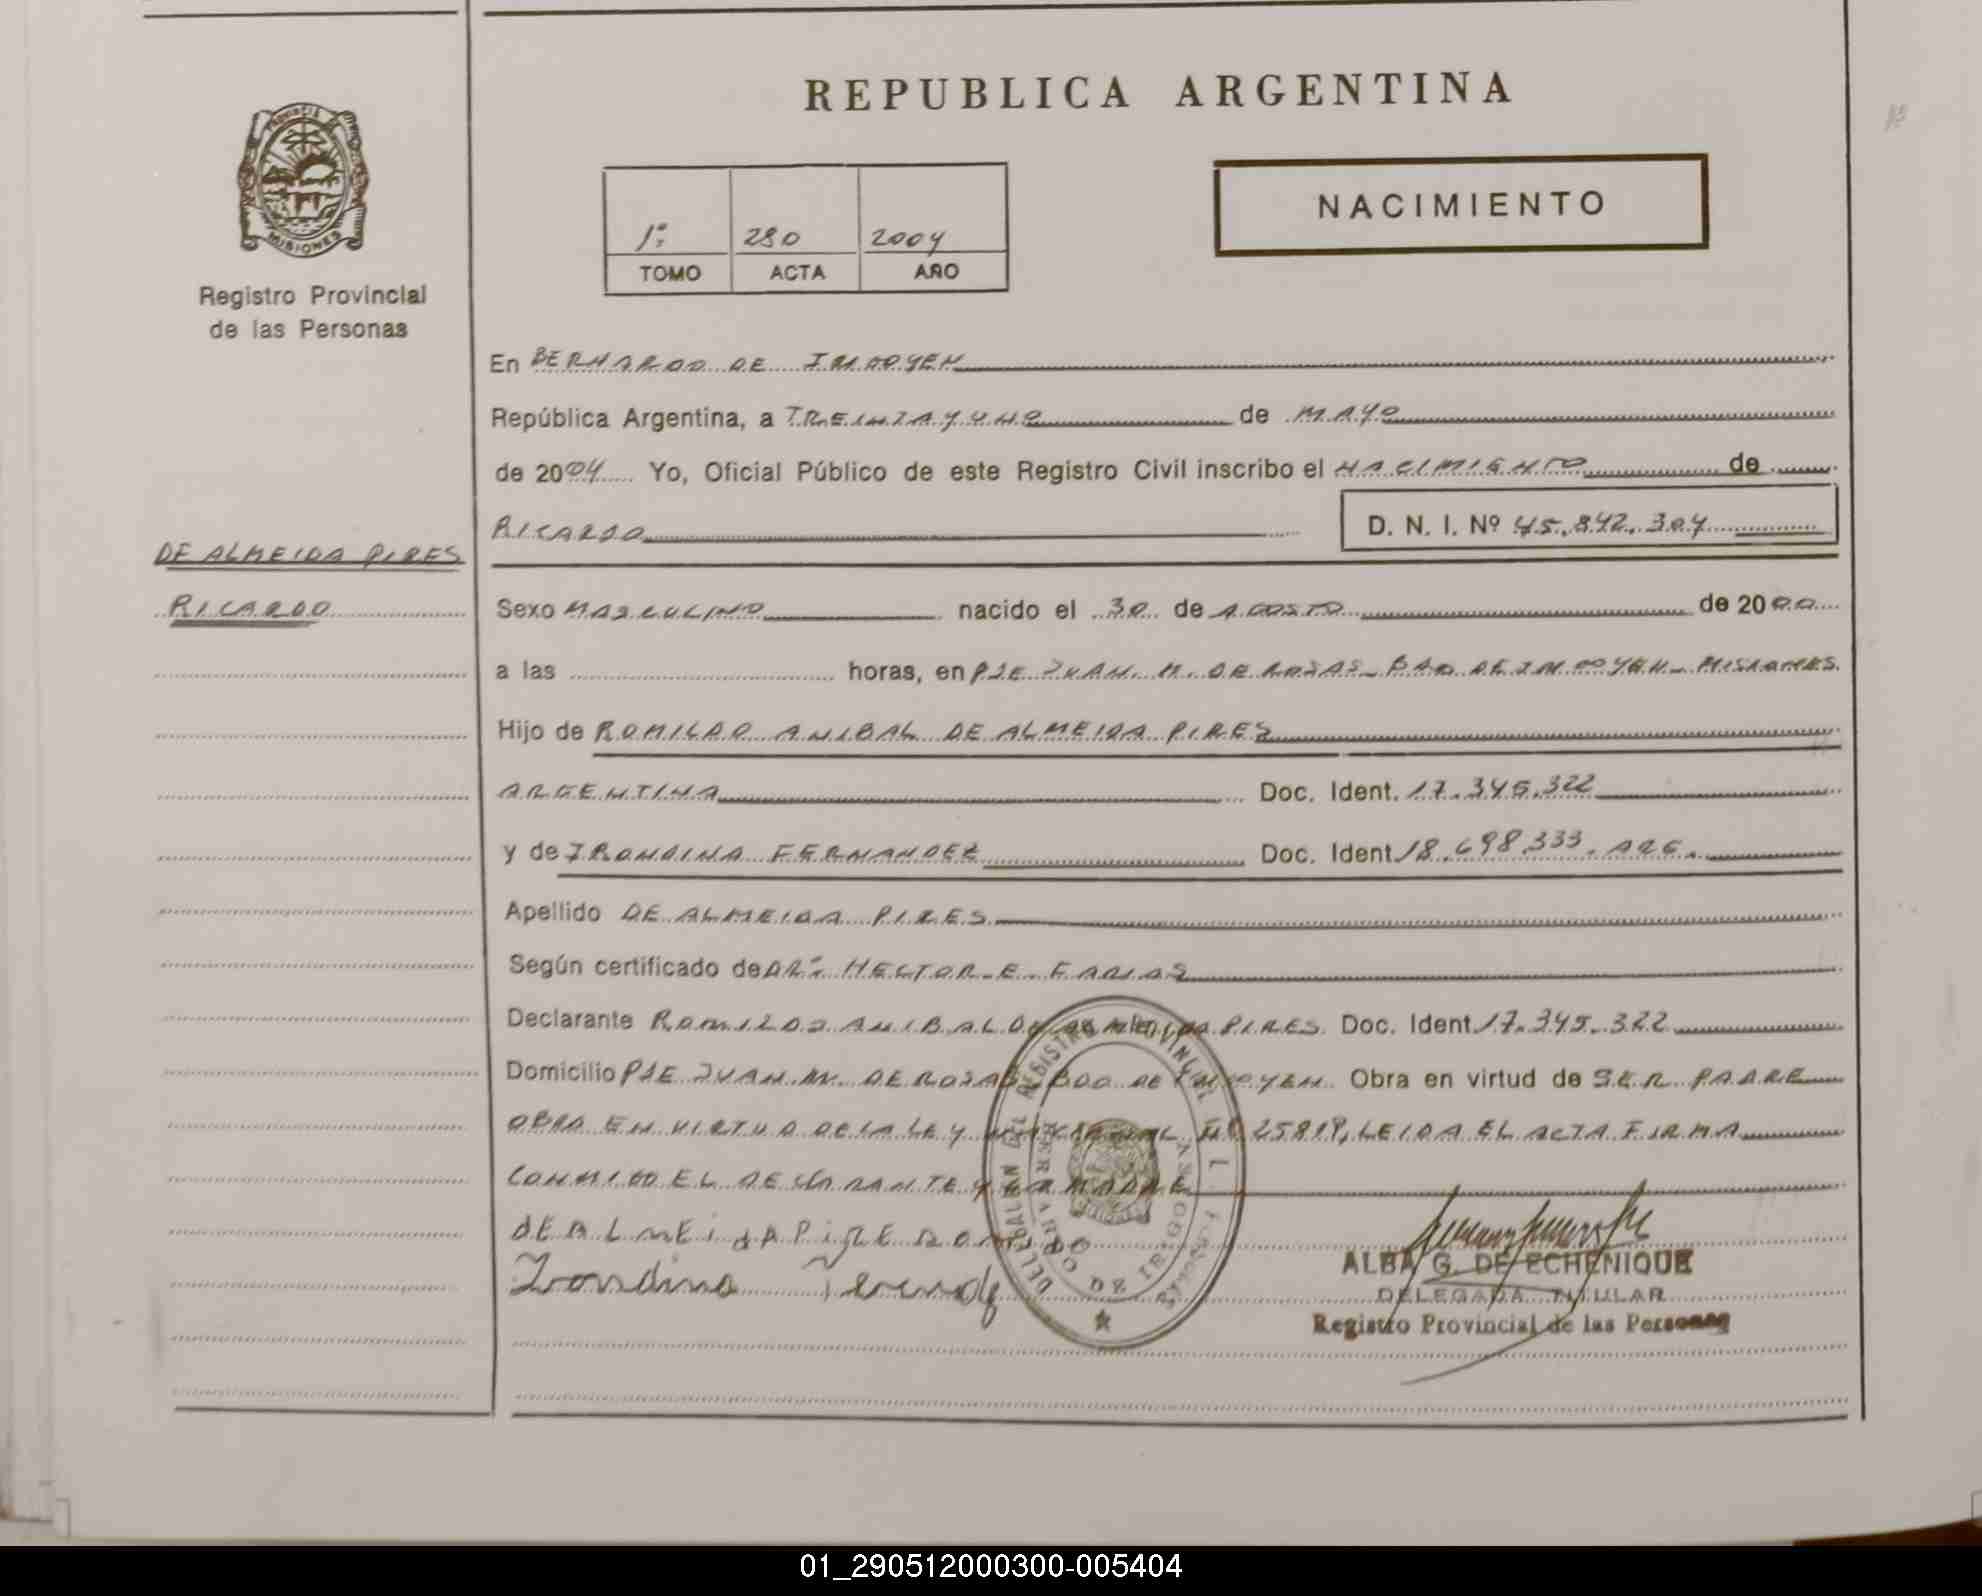 REPUBLICA ARGENTINA
NACIMIENTO
1º 280 2004
TOMO ACTA AÑO
MISIONES
Registro Provincial
de las Personas
En BERNARDO DE IRIGOYEN
República Argentina, a TREINTA Y UNO de MAYO
de 2004 Yo, Oficial Público de este Registro Civil inscribo el NACIMIENTO de
RICARDO D. N. I. Nº 45.842.304
DE ALMEIDA PIRES
RICARDO
Sexo MASCULINO nacido el 30 de AGOSTO de 2000
a las horas, en PJE JUAN M. DE ROSAS - BDO DE IRIGOYEN - MISIONES.
Hijo de ROMILDO ANIBAL DE ALMEIDA PIRES
ARGENTINA Doc. Ident. 17.345.322
y de IRONDINA FERNANDEZ Doc. Ident 18.698.333. ARG.
Apellido DE ALMEIDA PIRES
Según certificado de DRº HECTOR E. FARIAS
Declarante ROMILDO ANIBAL DE ALMEIDA PIRES Doc. Ident 17.345.322
Domicilio PJE JUAN M. DE ROSAS BDO DE IRIGOYEN Obra en virtud de SER PADRE
OBRA EN VIRTUD DE LA LEY NACIONAL Nº 25819, LEIDA EL ACTA FIRMA
CONMIGO EL DECLARANTE Y LA MADRE
DE ALMEIDA PIRE ROMILDO
ALBA G. DE ECHENIQUE
DELEGADA TITULAR
Registro Provincial de las Personas
01_290512000300-005404